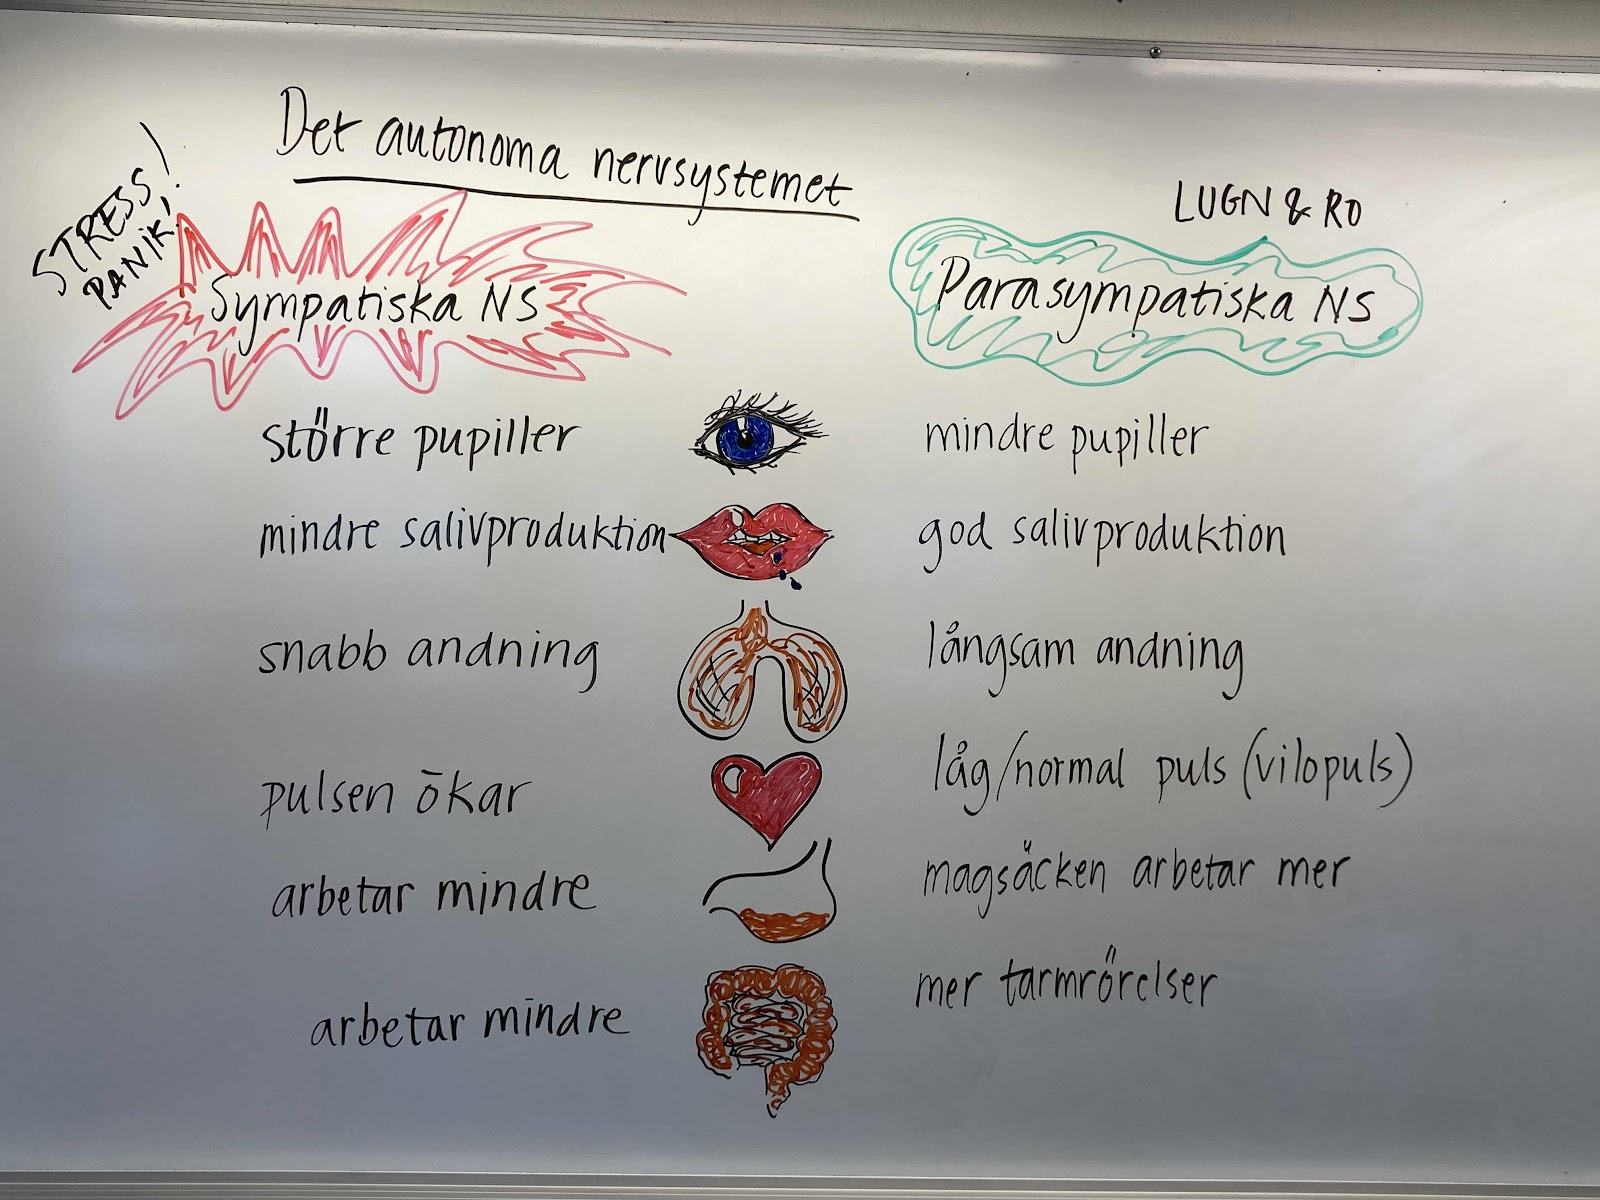 Det autonoma nervsystemet
STRESS!
PANIK!
LUGN & RO
Sympatiska NS
Parasympatiska NS
större pupiller
mindre pupiller
mindre salivproduktion
god salivproduktion
snabb andning
långsam andning
pulsen ökar
låg/normal puls (vilopuls)
arbetar mindre
magsäcken arbetar mer
arbetar mindre
mer tarmrörelser